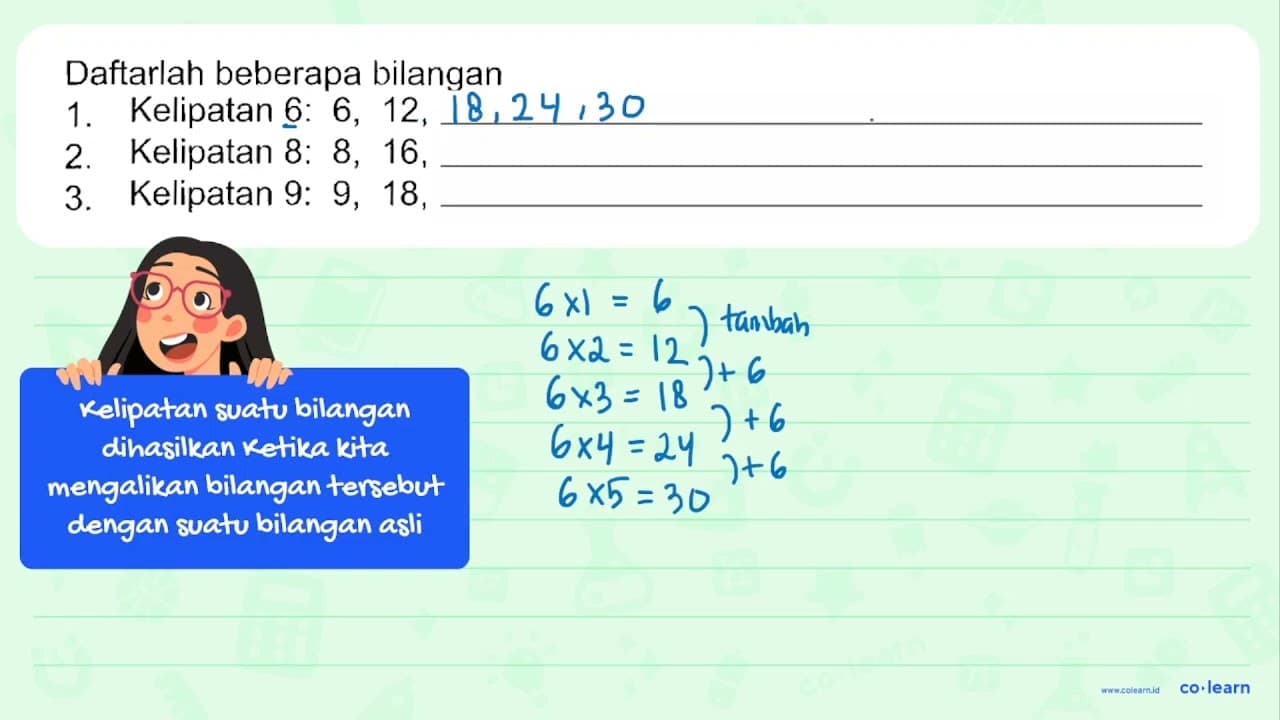 Daftarlah beberapa bilangan
1. Kelipatan 6: 6, 12, 18, 24, 30
2. Kelipatan 8: 8, 16,
3. Kelipatan 9: 9, 18,
Kelipatan suatu bilangan
dihasilkan ketika kita
mengalikan bilangan tersebut
dengan suatu bilangan asli
6 x 1 = 6
tambah
6 x 2 = 12
+ 6
6 x 3 = 18
+ 6
6 x 4 = 24
+ 6
6 x 5 = 30
www.colearn.id co·learn